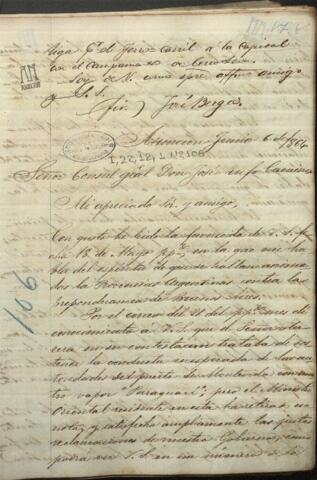 liga p.ª el ferro carril a la capital
en el campamento de Cerro Leon.
Soy de V. como spre affmo amigo
y S. S.
(fir.) José Berges.
Asuncion Junio 6 de 1864
I, 22, 12, 1 Nº 106
Señor Consul gral Don José Rufo Caminos
Mi apreciado Sr. y amigo,
Con gusto he leido la favorecida de V. S. fe
cha 18 de Mayo ppº, en la que me ha
bla del espiritu de que se hallan anima
das las Provincias Argentinas contra la
preponderancia de Buenos Aires.
Por el correo del 21 del ppº mes di
conocimiento a V. S. que el Señor
era en su contestacion trataba de sos
tener la conducta inesperada de las au
toridades del puerto de Montevideo con nues
tro vapor "Paraguari", pero el Ministro
Oriental residente en esta ha retirado su
nota, y satisfecho ampliamente las justas
reclamaciones de nuestro Gobierno, como
podrá ver V. S. en un numero de la
106